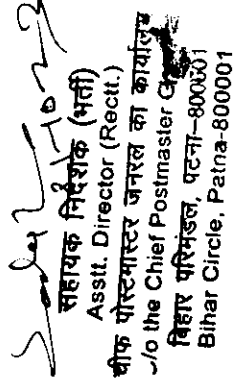 सहायक निदेशक (भर्ती)
Asstt. Director (Rectt.)
चीफ पोस्टमास्टर जनरल का कार्यालय
-/o the Chief Postmaster G
बिहार परिमंडल, पटना-800001
Bihar Circle, Patna-800001